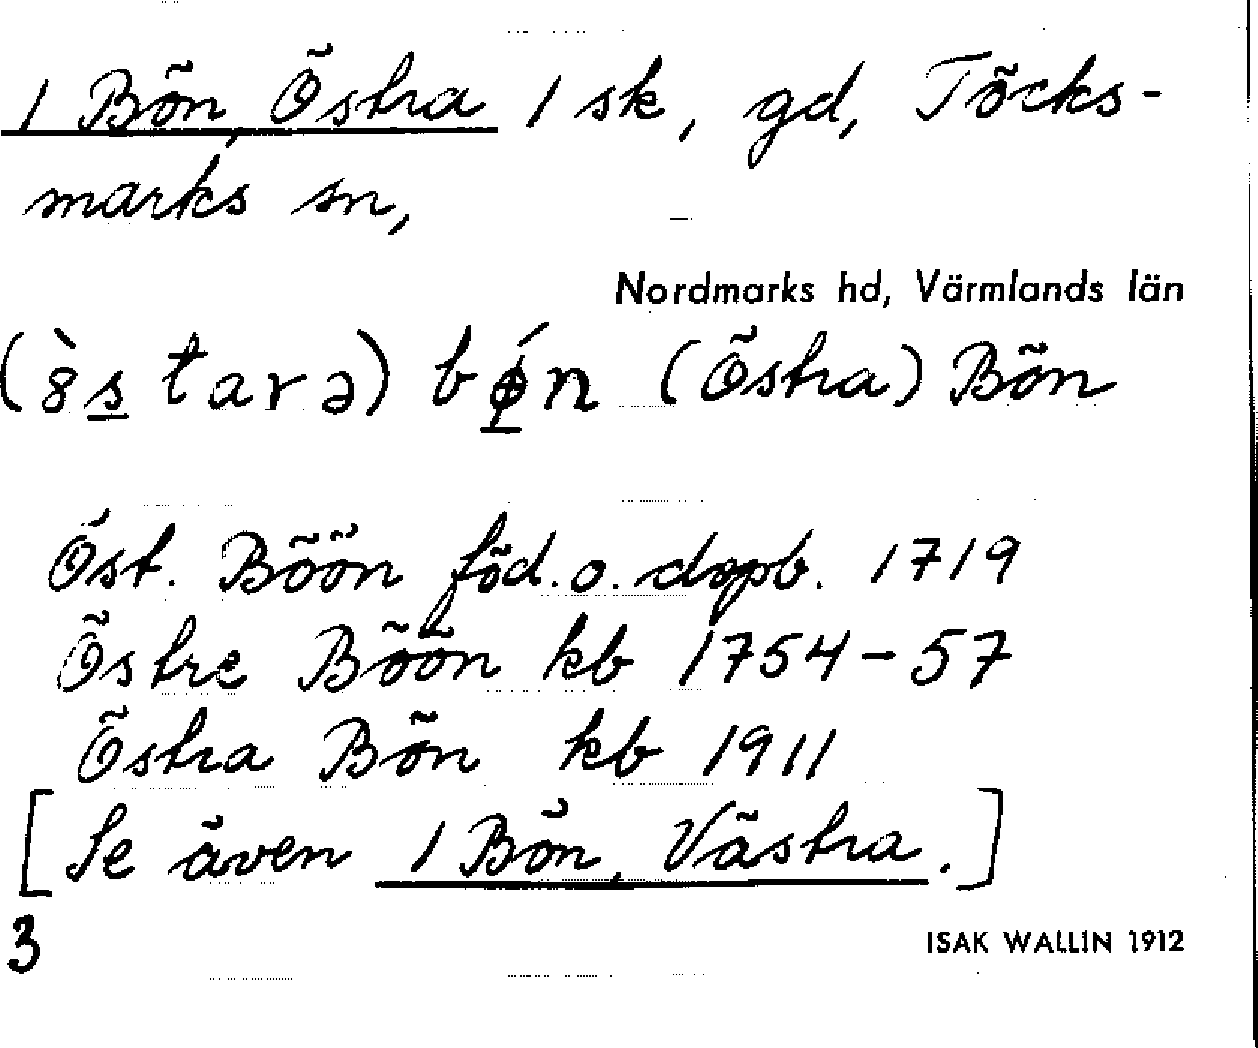 1 Bön, Östra 1 sk, gd, Töcks-
marks sn,
Nordmarks hd, Värmlands län
(Östra) Bön
Öst. Böön föd. o. dopb. 1719
Östre Böön kb 1754-57
Östra Bön kb 1911
[Se även 1 Bön, Västra.]
3
ISAK WALLIN 1912